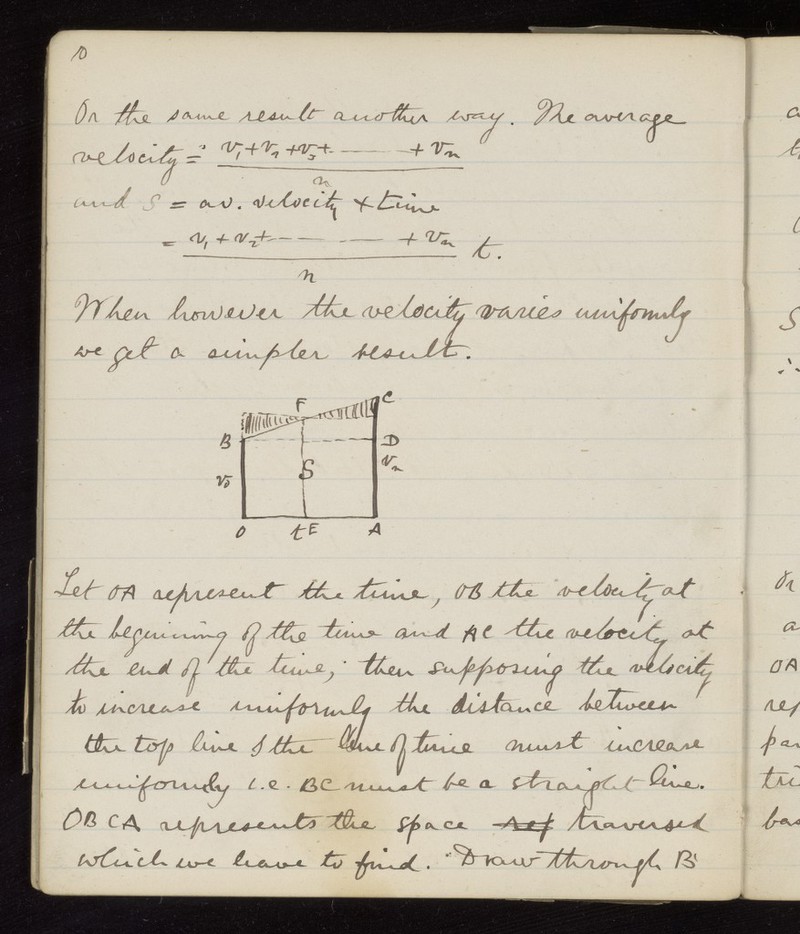 10
Or the same result another way. The average
velocity = v₁+v₂+v₃+ — — + vₙ
n
and S = av. velocity × time
= v₁+v₂+ — — — + vₙ t.
n
When however the velocity varies uniformly
we get a simpler result.
F C
B D
v₀ S vₙ
O t E A
Let OA represent the time, OB the velocity at
the beginning of the time and AC the velocity at
the end of the time; then supposing the velocity
to increase uniformly the distance between
the top line & the line of time must increase
uniformly i.e. BC must be a straight line.
OBCA represents the space rep traversed
which we have to find. Draw through B
a
t
S
∴
Or
a
OA
rep
par
tri
bas